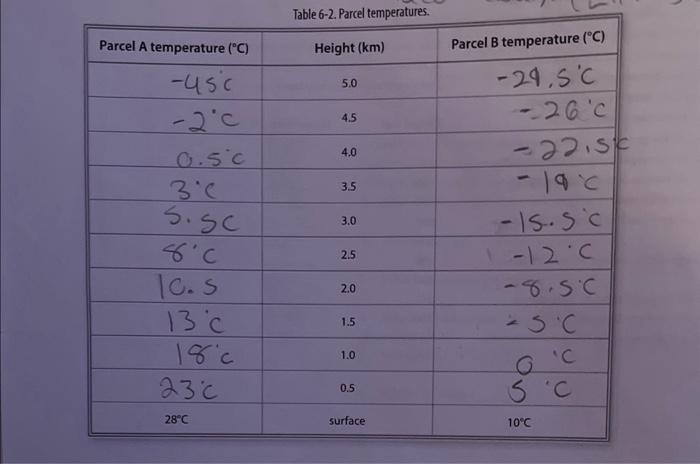 Table 6-2. Parcel temperatures.
Parcel A temperature (°C) Height (km) Parcel B temperature (°C)
-4.5°C 5.0 -29.5°C
-2°C 4.5 -26°C
0.5°C 4.0 -22.5°C
3°C 3.5 -19°C
5.5C 3.0 -15.5°C
8°C 2.5 -12°C
10.5 2.0 -8.5°C
13°C 1.5 -5°C
18°C 1.0 0°C
23°C 0.5 5°C
28°C surface 10°C